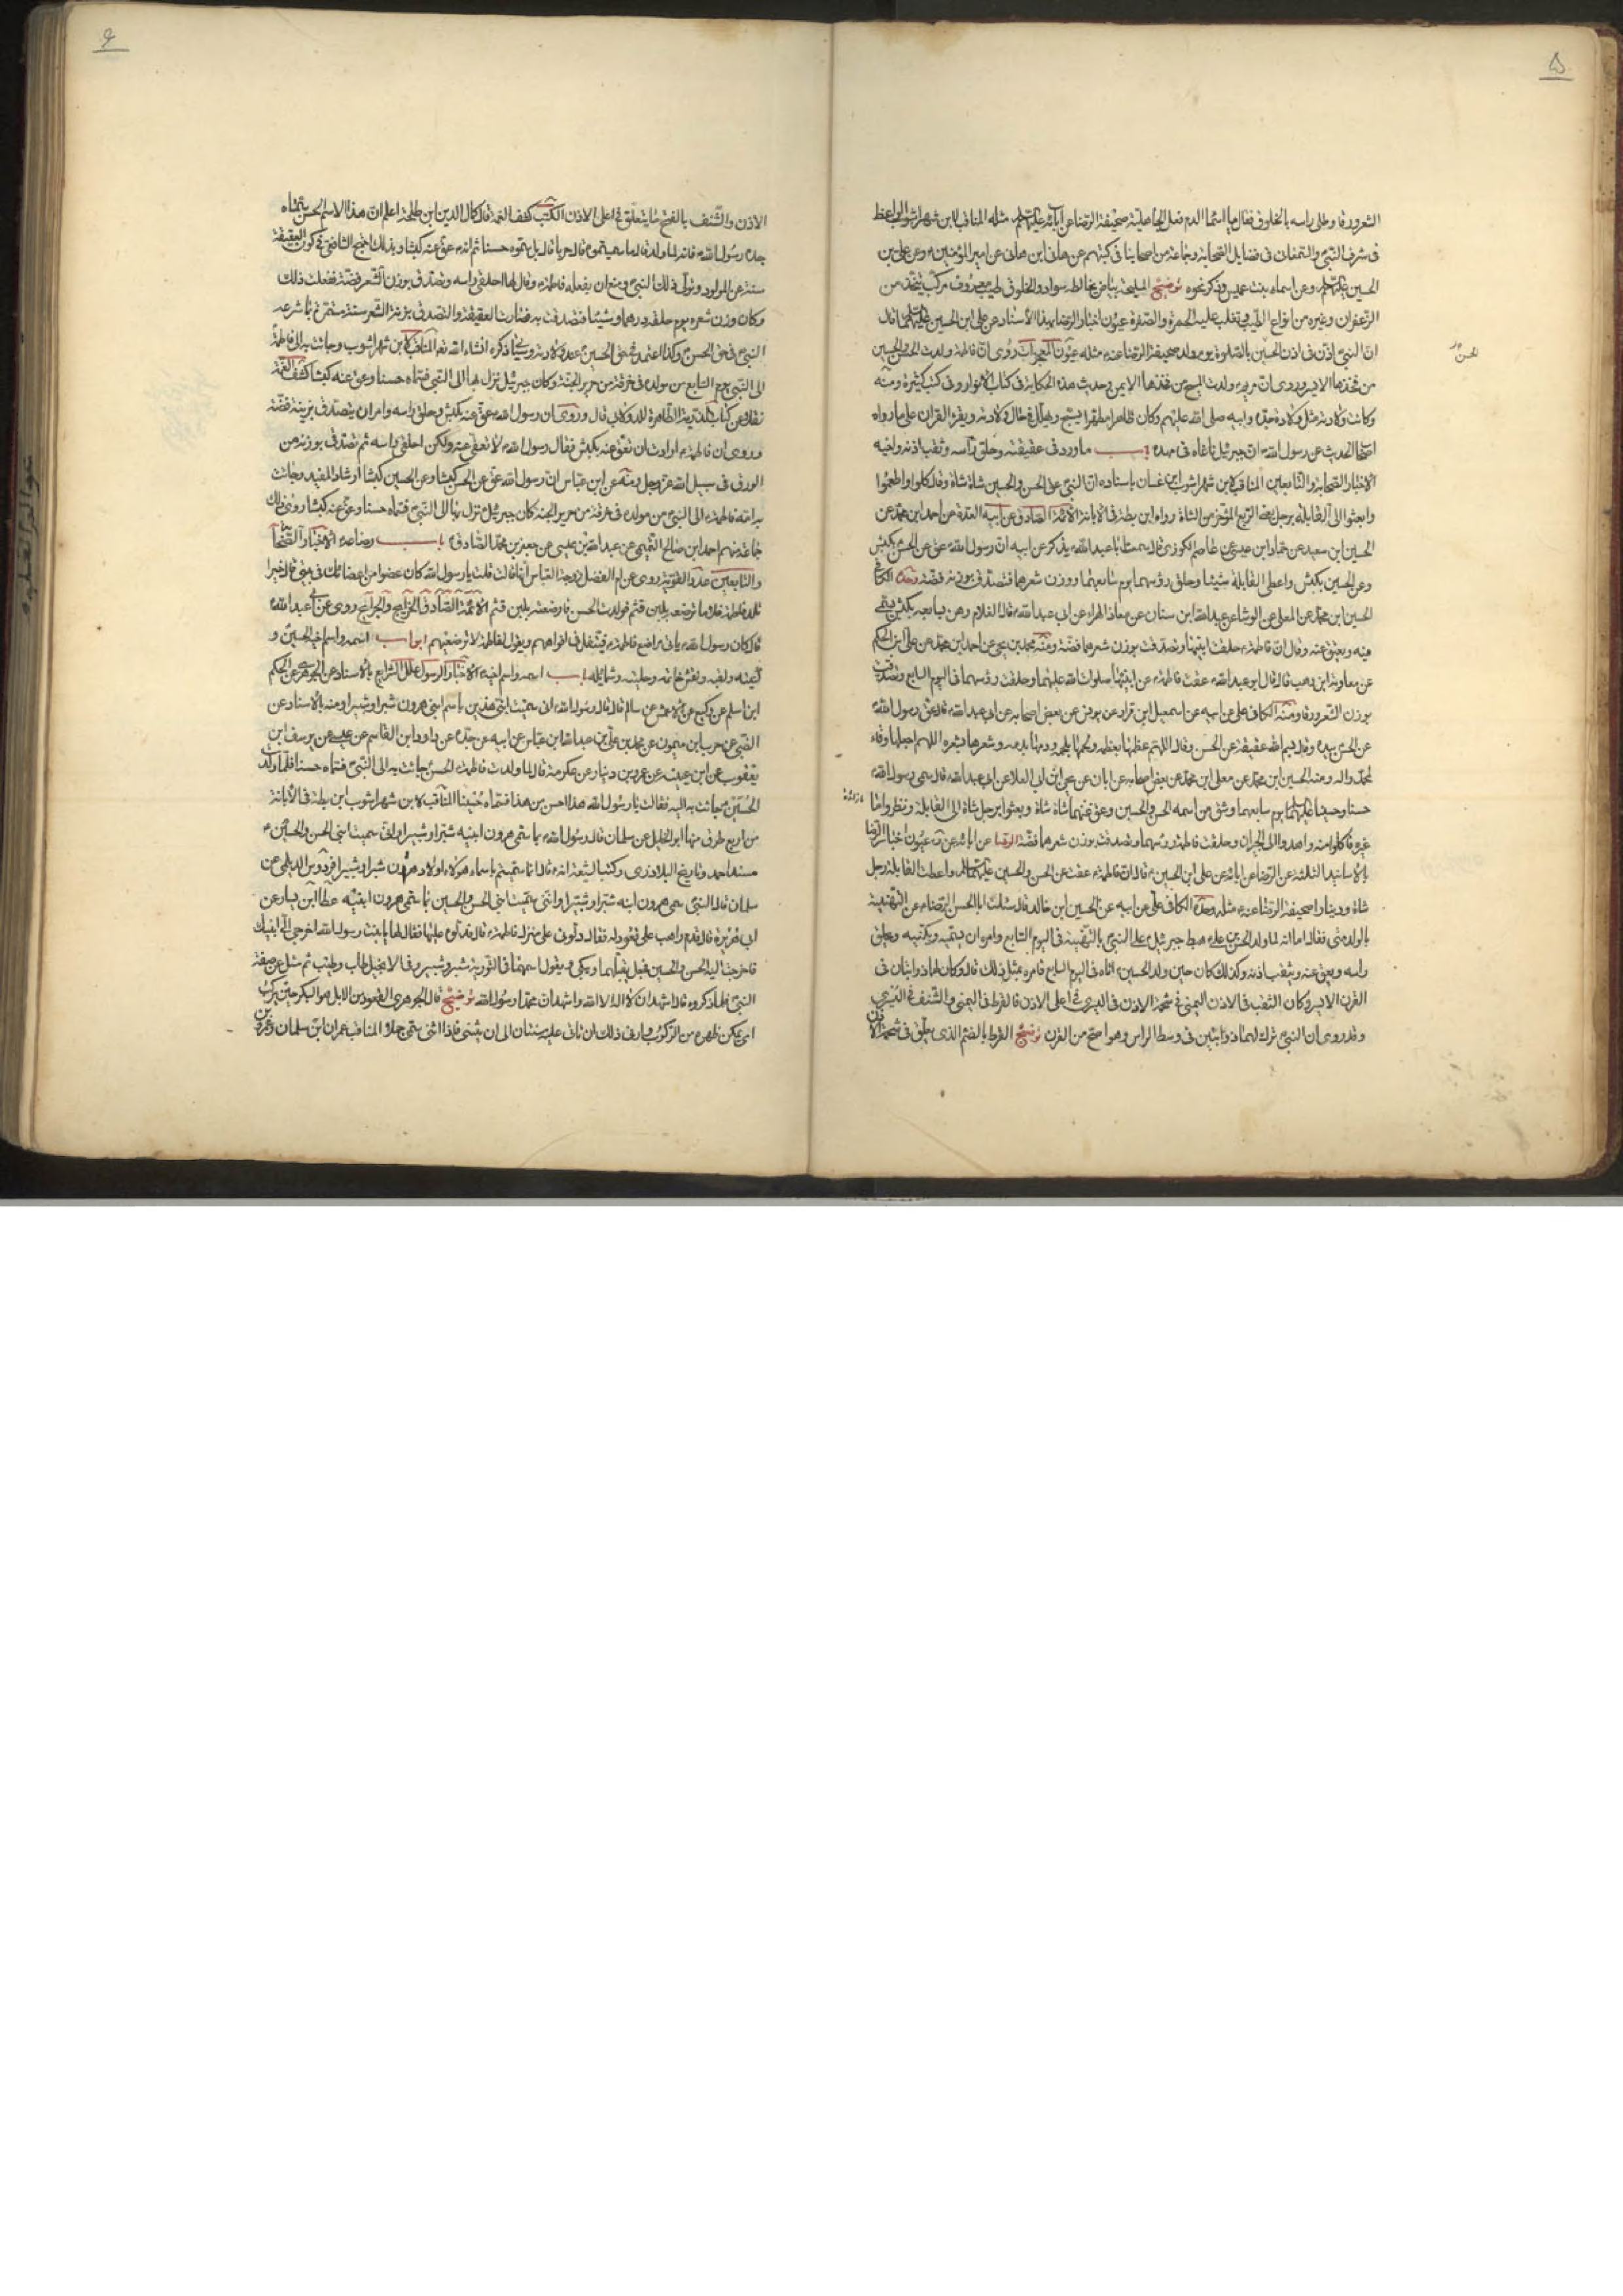 ۵
الشعر ورقا وطلى راسه بالخلوق فقال يا اسماء الدم فعل الجاهلية صحيفة الرضا عن آبائه عليهم السلم مثله المناقب لابن شهراشوب الواعظ
فى شرف النبى والسمعانى فى فضايل الصحابة وجماعة من اصحابنا فى كتبهم عن هانى ابن هانى عن امير المؤمنين وعن على بن
الحسين عليهما السلم وعن اسماء بنت عميس وذكر نحوه توضيح الملحة بياض يخالطه سواد والخلوق طيب معروف مركب يتخذ من
الزعفران وغيره من انواع الطيب وتغلب عليه الحمرة والصفرة عيون اخبار الرضا بهذا الاسناد عن على ابن الحسين عليهما السلم قال
ان النبى اذن فى اذن الحسين بالصلوة يوم ولد صحيفة الرضا عنه مثله عيون المعجزات روى ان فاطمة ولدت الحسن والحسين
الحسن
من فخذها الايسر وروى ان مريم ولدت المسيح من فخذها الايمن وحديث هذه الحكاية فى كتاب الانوار وفى كتب كثيرة ومنه
وكانت ولادته مثل ولادة جده وابيه صلى الله عليهم وكان طاهرا مطهرا يسبح ويهلل فى حال ولادته ويقرء القران على ما رواه
اصحاب الحديث عن رسول الله ان جبرئيل ناغاه فى مهده باب ما ورد فى عقيقته وحلق رأسه وثقب اذنه واخيه
الاخبار الصحابة والتابعين المناقب لابن شهراشوب ابن غسان باسناده ان النبى عق الحسن والحسين شاة شاة وقال كلوا واطعموا
وابعثوا الى القابلة برجل يعنى الربع المؤخر من الشاة رواه ابن بطة فى الابانة الائمة الصادق عن ابيه العدة عن احمد ابن محمد عن
الحسين ابن سعيد عن حماد ابن عيسى عن عاصم الكوزى قال سمعت ابا عبد الله يذكر عن ابيه ان رسول الله عق عن الحسن بكبش
وعن الحسين بكبش واعطى القابلة شيئا وحلق رؤسهما يوم سابعهما ووزن شعرهما فتصدق بوزنه فضة وحده الكافى
الحسين ابن محمد عن المعلى عن الوشا عن عبد الله ابن سنان عن معاذ الهراء عن ابى عبد الله قال الغلام رهن بسابعه بكبش يسمى
فيه ويعق عنه وقال ان فاطمة حلقت ابنيها وتصدقت بوزن شعرهما فضة ومنه محمد بن يحيى عن احمد ابن محمد عن على ابن الحكم
عن معاوية ابن وهب قال قال ابو عبد الله عقت فاطمة عن ابنيها صلوات الله عليهما وحلقت رؤسهما فى اليوم السابع وتصدقت
بوزن الشعر ورقا ومنه الكافى على عن ابيه عن اسمعيل ابن مرار عن يونس عن بعض اصحابه عن ابى عبد الله قال عق رسول الله
عن الحسن بيده وقال بسم الله عقيقة عن الحسن وقال اللهم عظمها بعظمه ولحمها بلحمه ودمها بدمه وشعرها بشعره اللهم اجعلها وقاء
لمحمد واله ومنه الحسين ابن محمد عن معلى ابن محمد عن بعض اصحابه عن ابان عن يحيى ابن ابى العلا عن ابى عبد الله قال سمى رسول الله
حسنا وحسينا عليهما السلم يوم سابعهما وشق من اسمه الحسن والحسين وعق عنهما شاة شاة وبعثوا برجل شاة الى القابلة ونظروا ما
غيره فاكلوا منه واهدوا الى الجيران وحلقت فاطمة رؤسهما وتصدقت بوزن شعرهما فضة الرضا عن ابائه عيون اخبار الرضا
بالاسانيد الثلثة عن الرضا عن ابائه عن على ابن الحسين قال ان فاطمة عقت عن الحسن والحسين عليهما السلم واعطت القابلة رجل
شاة ودينارا صحيفة الرضا عنه مثله وحده الكافى على عن ابيه عن الحسين ابن خالد قال سئلت ابا الحسن الرضا عن التهنية
بالولد متى فقال اما انه لما ولد الحسن بن على هبط جبرئيل على النبى بالتهنية فى اليوم السابع وامره ان يسميه ويكنيه ويحلق
راسه ويعق عنه ويثقب اذنه وكذلك كان حين ولد الحسين اتاه فى اليوم السابع فامره بمثل ذلك قال وكان لهما ذوابتان فى
القرن الايسر وكان الثقب فى الاذن اليمنى فى شحمة الاذن وفى اليسرى فى اعلى الاذن فالقرط فى اليمنى والشنف فى اليسرى
وقد روى ان النبى ترك لهما ذوابتين فى وسط الراس وهو اصح من القرن توضيح القرط بالضم الذى يعلق فى شحمة الاذن
۶
الاذن والشنف بالفتح ما يتعلق فى اعلى الاذن الكتب كشف الغمة قال كمال الدين ابن طلحة اعلم ان هذا الاسم الحسن سماه
جده رسول الله فانه لما ولد قال ما سميتموه قالوا حربا قال بل سموه حسنا ثم انه عق عنه كبشا وبذلك احتج الشافعى فى كون العقيقة
سنة عن المولود وتولى ذلك النبى ومنع ان يفعله فاطمة وقال لها احلقى راسه وتصدقى بوزن الشعر فضة ففعلت ذلك
وكان وزن شعره يوم حلقه درهما وشيئا فتصدقت به فصارت العقيقة والتصدق بزنة الشعر سنة مستمرة بما شرعه
النبى فى حق الحسن وكذا اعتمد فى حق الحسين عند ولادته وسيأتى ذكره انشاء الله تعم المناقب لابن شهراشوب وجاءت به الى فاطمة
الى النبى يوم السابع من مولده فى خرقة من حرير الجنة وكان جبرئيل نزل بها الى النبى فسماه حسنا وعق عنه كبشا كشف الغمة
نقلا عن كتاب الذرية الطاهرة للدولابى قال وروى ان رسول الله عق عنه بكبش وحلق راسه وامر ان يتصدق بزنته فضة
وروى ان فاطمة ارادت ان تعق عنه بكبش فقال رسول الله لا تعقى عنه ولكن احلقى راسه ثم تصدقى بوزنه من
الورق فى سبيل الله عز وجل ومنه عن ابن عباس ان رسول الله عق عن الحسن كبشا وعن الحسين كبشا ارشاد المفيد وجاءت
به امه فاطمة الى النبى من مولده فى خرقة من حرير الجنة كان جبرئيل نزل بها الى النبى فسماه حسنا وعق عنه كبشا روى ذلك
جماعة منهم احمد ابن صالح التميمى عن عبد الله بن عيسى عن جعفر بن محمد الصادق باب رضاعه الاخبار الصحابة
والتابعين عدد القوية روى عن ام الفضل زوجة العباس انها قالت قلت يا رسول الله كان عضوا من اعضائك فى بيتى قال خيرا
تلد فاطمة غلاما ترضعه بلبن قثم فولدت الحسن فارضعته بلبن قثم الائمة الصادق الخرايج والجرايح روى عن ابى عبد الله
قال كان رسول الله ياتى مراضع فاطمة فيتفل فى افواههم ويقول لفاطمة لا ترضعيهم ابواب اسمه واسم اخيه الحسين و
كنيته ولقبه ونقش خاتمه وحليته وشمايله باب اسمه واسم اخيه الاخبار الرسول علل الشرايع بالاسناد عن الجوهرى عن الحكم
ابن اسلم عن وكيع عن الاعمش عن سالم قال قال رسول الله انى سميت ابنى هذين باسم ابنى هرون شبرا وشبيرا ومنه بالاسناد عن
الضبى عن حرب ابن ميمون عن محمد بن على بن عبد الله ابن عباس عن ابيه عن جده عن داود ابن القاسم عن عيسى عن يوسف ابن
يعقوب عن ابن عيينه عن عمرو بن دينار عن عكرمة قال لما ولدت فاطمة الحسن جاءت به الى النبى فسماه حسنا فلما ولد
الحسين جاءت به اليه فقالت يا رسول الله هذا احسن من هذا فسماه حسينا المناقب لابن شهراشوب ابن بطة فى الابانة
من اربع طرق منها ابو الخليل عن سلمان قال رسول الله سمى هرون ابنيه شبرا وشبيرا وانى سميت ابنى الحسن والحسين
مسند احمد وتاريخ البلاذرى وكتب الشيعة انه قال انما سميتهم باسماء هؤلاء اولاد هرون شبرا وشبيرا فردوس الديلمى عن
سلمان قال النبى سمى هرون ابنه شبرا وشبيرا وانى سميت ابنى الحسن والحسين بما سمى هرون ابنيه عطا ابن يسار عن
ابى هريرة قال قدم راهب على قعود له فقال دلونى على منزل فاطمة قال فدلوه عليها فقال لها يا بنت رسول الله اخرجى الى ابنيك
فاخرجت اليه الحسن والحسين فجعل يقبلهما ويبكى ويقول اسمهما فى التورية شبر وشبير وفى الانجيل طاب وطيب ثم سئل عن صفة
النبى فلما ذكروه قال اشهد ان لا اله الا الله واشهد ان محمدا رسول الله توضيح قال الجوهرى القعود من الابل هو البكر حين يركب
اى يمكن ظهره من الركوب وادنى ذلك ان تاتى عليه سنتان الى ان يثنى فاذا اثنى سمى جملا المناقب عمران ابن سلمان وعمرو بن